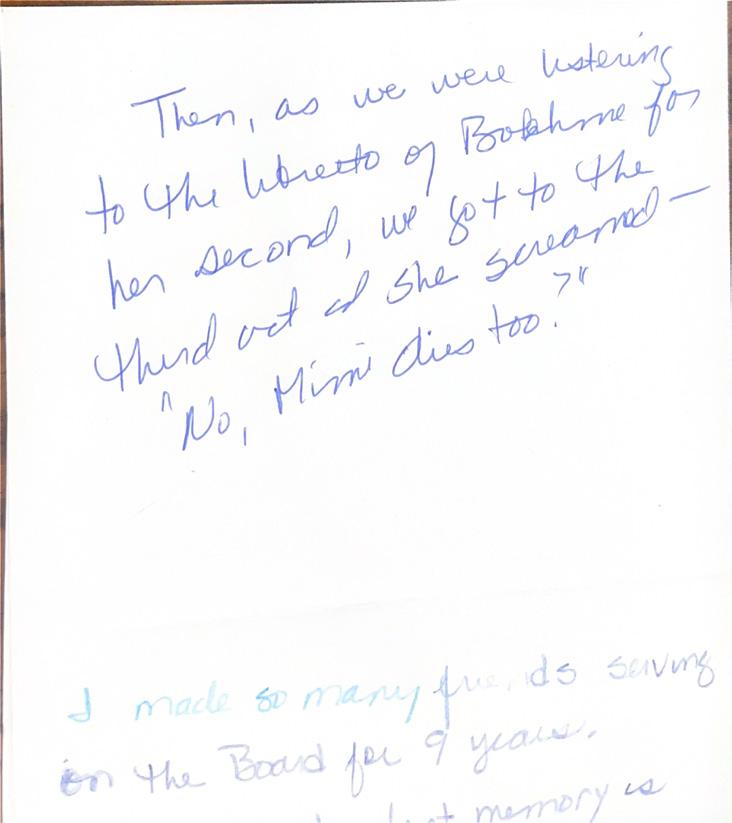 Then, as we were listening
to the libretto of Bohème for
her second, we got to the
third act and she screamed —
"No, Mimi dies too?"
I made so many friends serving
on the Board for 9 years.
memory is